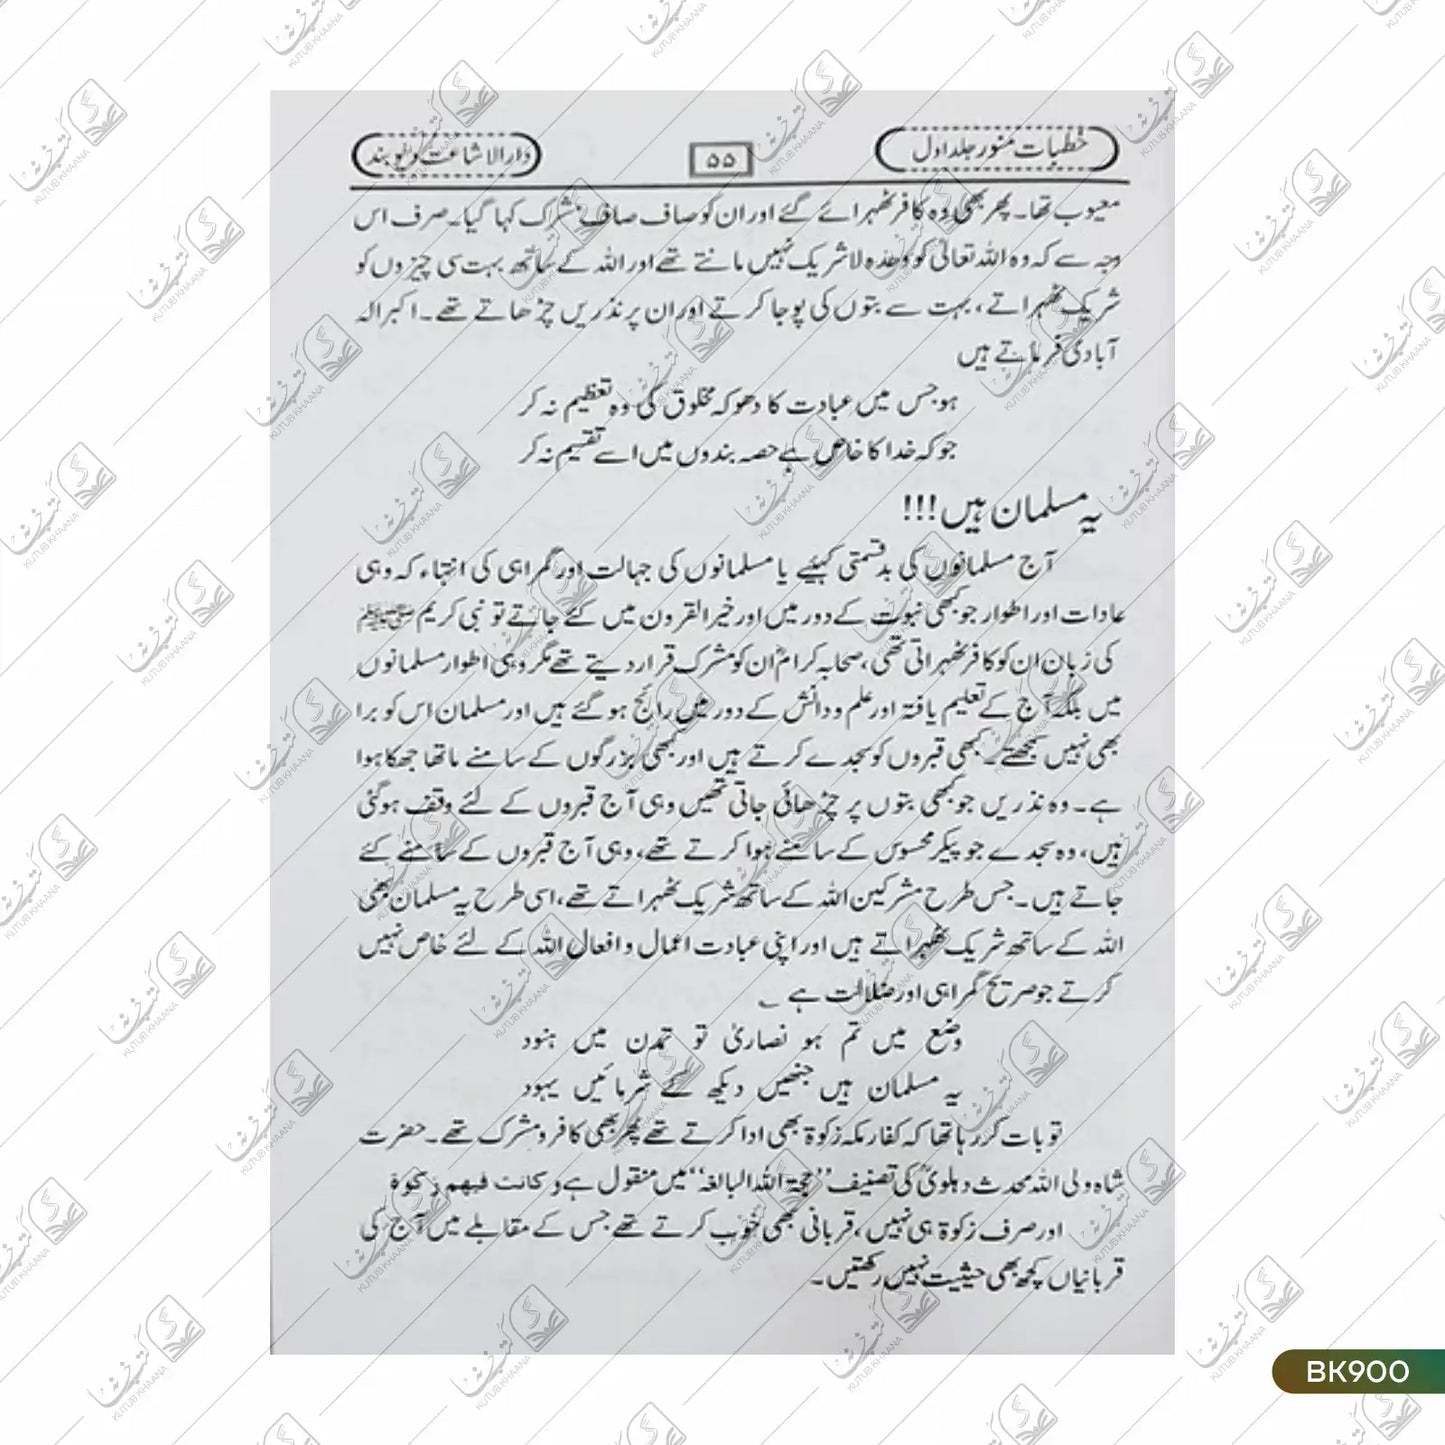 خطبات منور جلد اول
۵۵
دار الاشاعت دیوبند
معیوب تھا۔ پھر بھی وہ کافر ٹھہرائے گئے اور ان کو صاف صاف مشرک کہا گیا۔ صرف اس
وجہ سے کہ وہ اللہ تعالیٰ کو وحدہ لاشریک نہیں مانتے تھے اور اللہ کے ساتھ بہت سی چیزوں کو
شریک ٹھہراتے، بہت سے بتوں کی پوجا کرتے اور ان پر نذریں چڑھاتے تھے۔ اکبر الہ
آبادی فرماتے ہیں
ہو جس میں عبادت کا دھوکہ مخلوق کی وہ تعظیم نہ کر
جو کہ خدا کا خاص ہے حصہ بندوں میں اسے تقسیم نہ کر
یہ مسلمان ہیں!!!
آج مسلمانوں کی بدقسمتی کہیئے یا مسلمانوں کی جہالت اور گمراہی کی انتہاء کہ وہی
عادات اور اطوار جو کبھی نبوت کے دور میں اور خیر القرون میں کئے جاتے تو نبی کریم ﷺ
کی زبان ان کو کافر ٹھہراتی تھی، صحابہ کرامؓ ان کو مشرک قرار دیتے تھے مگر وہی اطوار مسلمانوں
میں بلکہ آج کے تعلیم یافتہ اور علم و دانش کے دور میں رائج ہو گئے ہیں اور مسلمان اس کو برا
بھی نہیں سمجھتے۔ کبھی قبروں کو سجدے کرتے ہیں اور کبھی بزرگوں کے سامنے ماتھا جھکا ہوا
ہے۔ وہ نذریں جو کبھی بتوں پر چڑھائی جاتی تھیں وہی آج قبروں کے لئے وقف ہوگئی
ہیں، وہ سجدے جو پیکر محسوس کے سامنے ہوا کرتے تھے، وہی آج قبروں کے سامنے کئے
جاتے ہیں۔ جس طرح مشرکین اللہ کے ساتھ شریک ٹھہراتے تھے، اسی طرح یہ مسلمان بھی
اللہ کے ساتھ شریک ٹھہراتے ہیں اور اپنی عبادت اعمال و افعال اللہ کے لئے خاص نہیں
کرتے جو صریح گمراہی اور ضلالت ہے ؎
وضع میں تم ہو نصاریٰ تو تمدن میں ہنود
یہ مسلمان ہیں جنھیں دیکھ کے شرمائیں یہود
تو بات کر رہا تھا کہ کفار مکہ زکوۃ بھی ادا کرتے تھے پھر بھی کافر و مشرک تھے۔ حضرت
شاہ ولی اللہ محدث دہلویؒ کی تصنیف ”حجۃ اللہ البالغہ“ میں منقول ہے و کانت فیھم زکوۃ
اور صرف زکوۃ ہی نہیں، قربانی بھی خوب کرتے تھے جس کے مقابلے میں آج کی
قربانیاں کچھ بھی حیثیت نہیں رکھتیں۔
BK900
کتب خانہ
KUTUB KHAANA